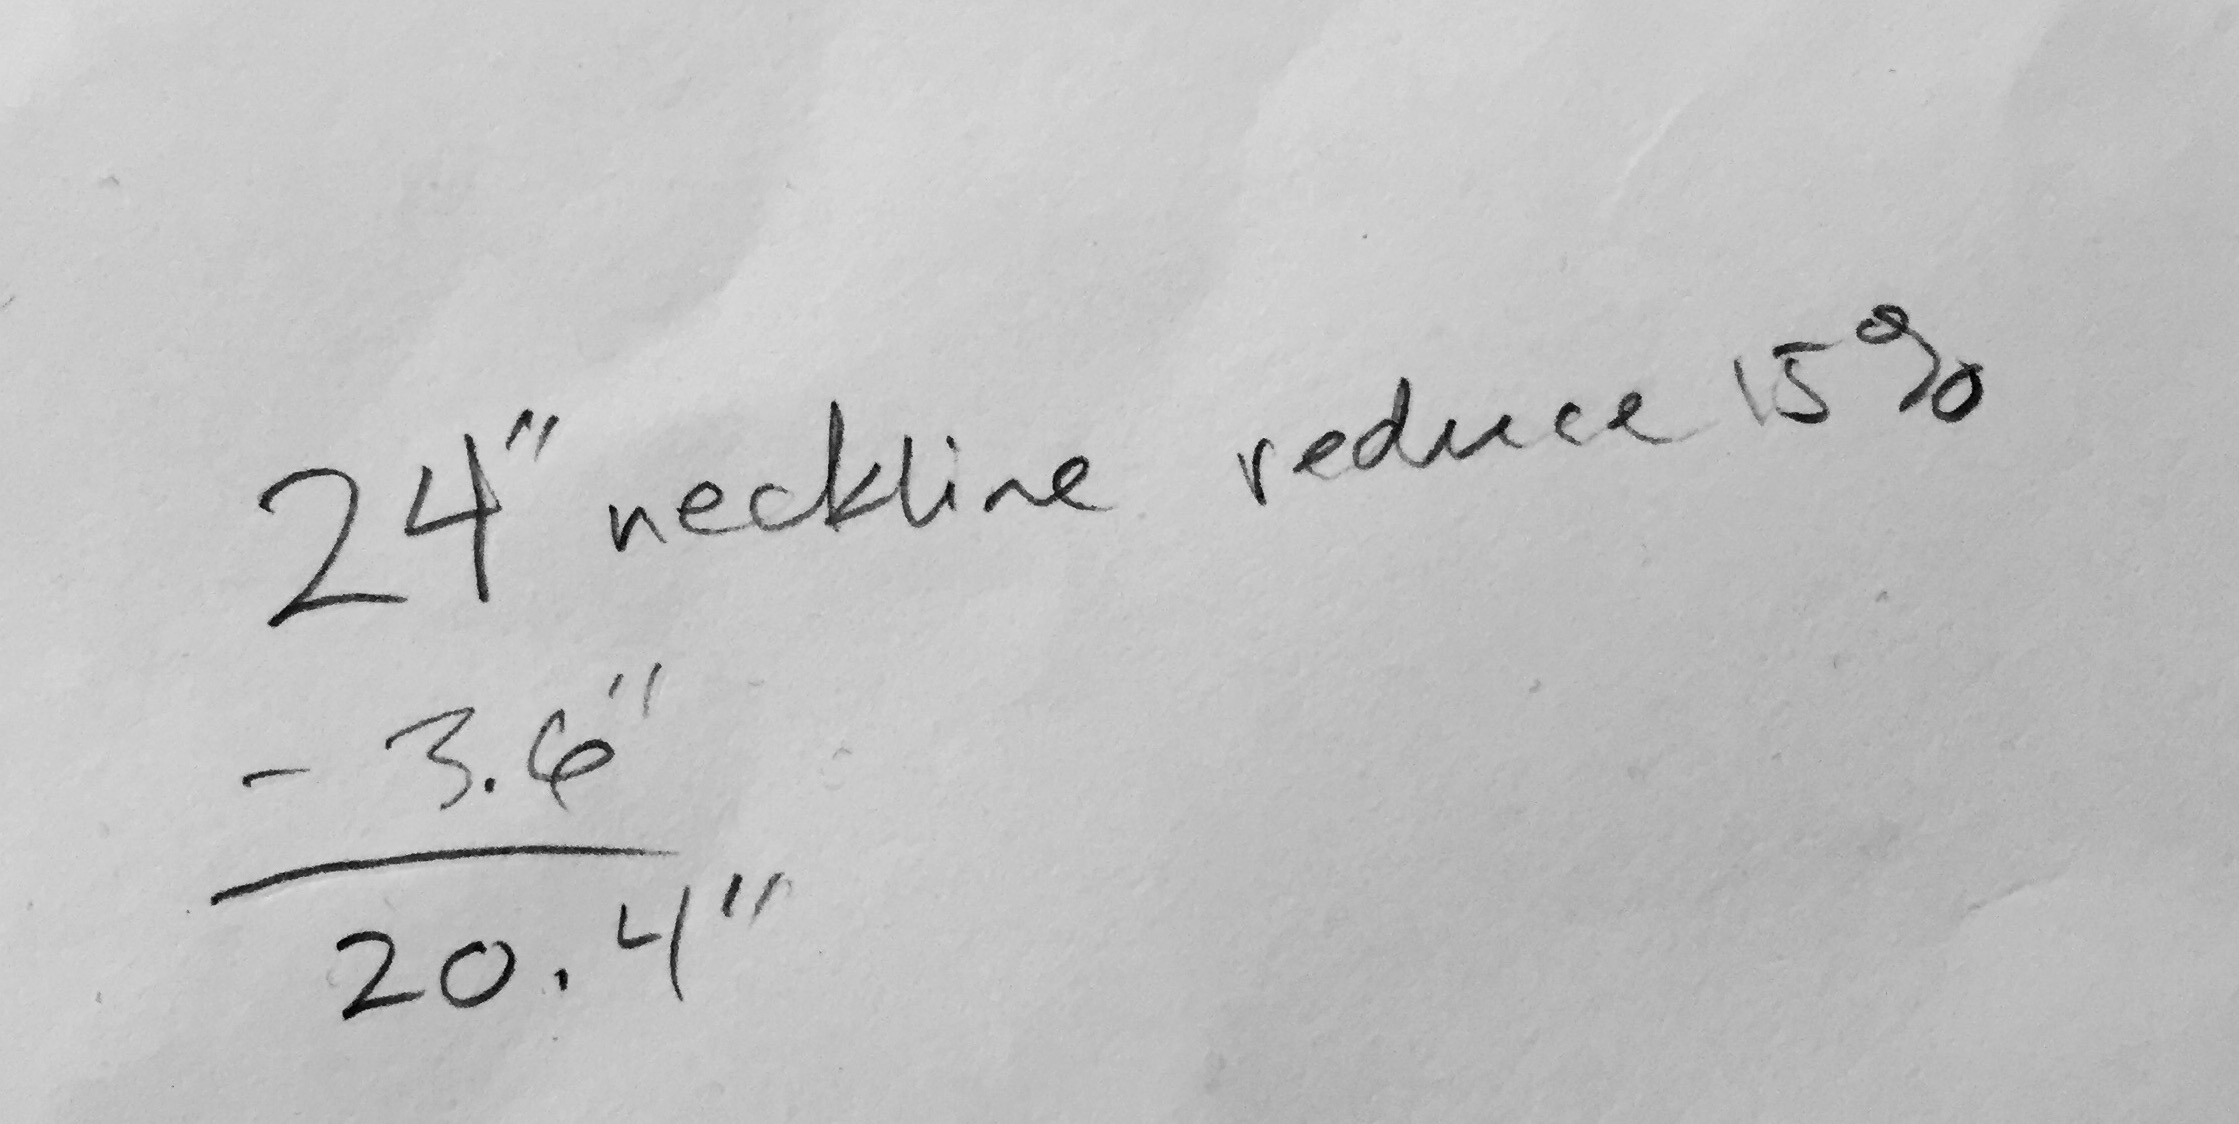 24" neckline reduce 15%
- 3.6"
20.4"